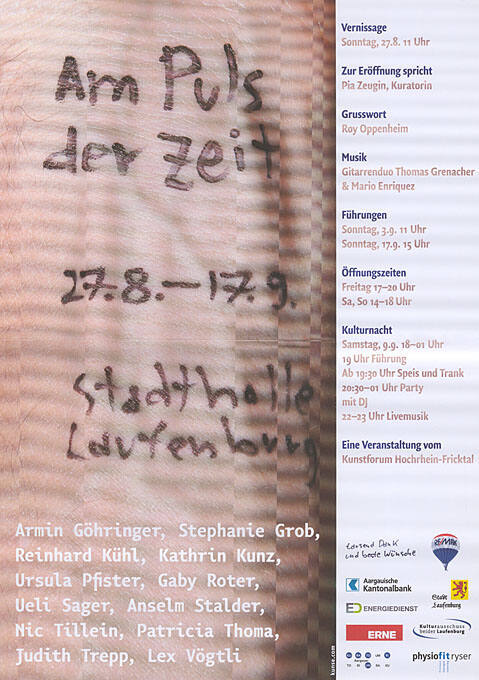 Am Puls
der Zeit
27.8.–17.9.
Stadthalle
Laufenburg
Armin Göhringer, Stephanie Grob,
Reinhard Kühl, Kathrin Kunz,
Ursula Pfister, Gaby Roter,
Ueli Sager, Anselm Stalder,
Nic Tillein, Patricia Thoma,
Judith Trepp, Lex Vögtli
kunse.com
Vernissage
Sonntag, 27.8. 11 Uhr
Zur Eröffnung spricht
Pia Zeugin, Kuratorin
Grusswort
Roy Oppenheim
Musik
Gitarrenduo Thomas Grenacher
& Mario Enriquez
Führungen
Sonntag, 3.9. 11 Uhr
Sonntag, 17.9. 15 Uhr
Öffnungszeiten
Freitag 17–20 Uhr
Sa, So 14–18 Uhr
Kulturnacht
Samstag, 9.9. 18–01 Uhr
19 Uhr Führung
Ab 19:30 Uhr Speis und Trank
20:30–01 Uhr Party
mit DJ
22–23 Uhr Livemusik
Eine Veranstaltung vom
Kunstforum Hochrhein-Fricktal
tausend Dank
und beste Wünsche
RE/MAX
Aargauische
Kantonalbank
Stadt
Laufenburg
ENERGIEDIENST
ERNE
Kulturausschuss
beider Laufenburg
physiofitryser